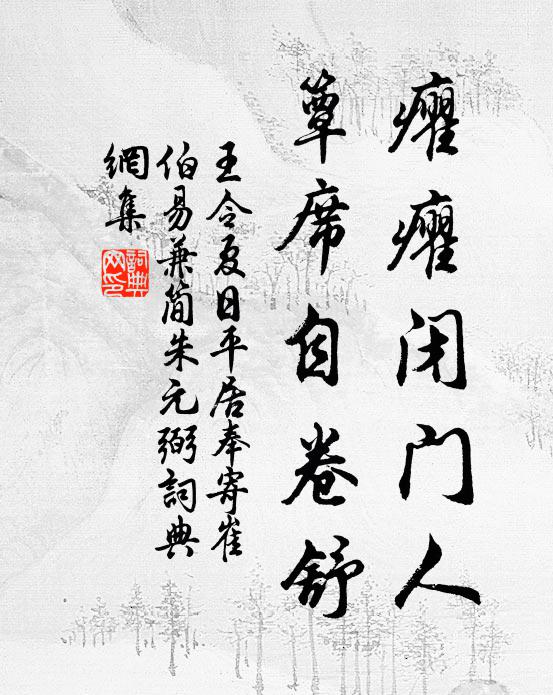 癯癯闭门人
簟席自卷舒
王令夏日平居奉寄崔
伯易兼简朱元弼詞典
網集
詞典
网印